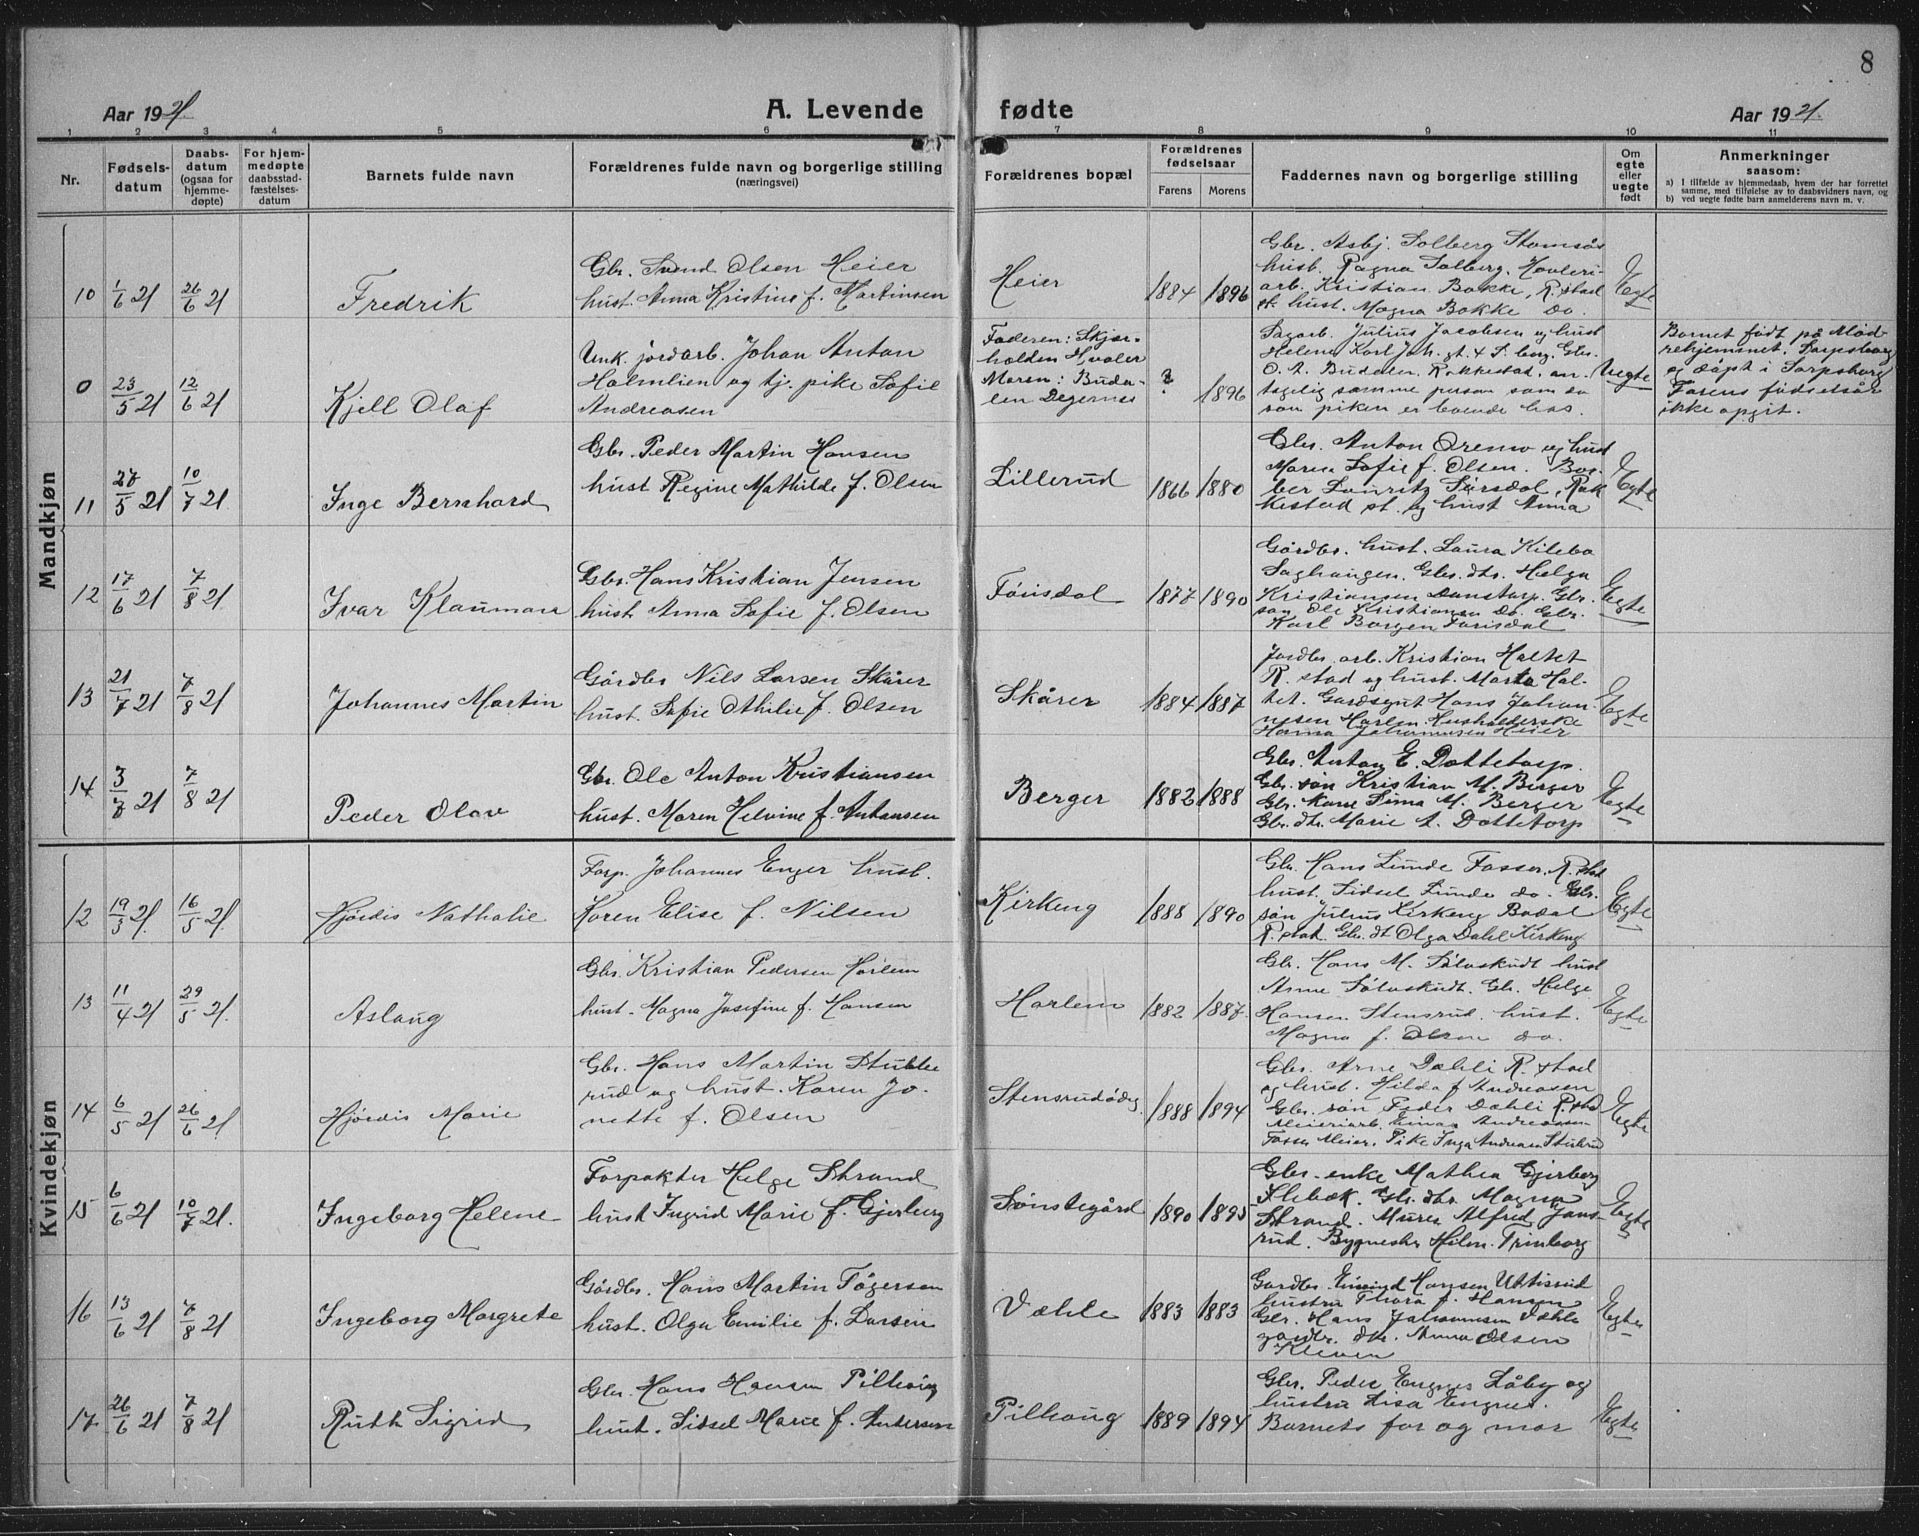 8
Aar 1921
A. Levende fødte
Aar 1921.
1 2 3 4 5 6 7 8 9 10 11
Nr.
Fødselsdatum
Daabsdatum (ogsaa for hjemmedøpte)
For hjemmedøpte daabsstadfæstelsesdatum
Barnets fulde navn
Forældrenes fulde navn og borgerlige stilling
(næringsvei)
Forældrenes bopæl
Forældrenes fødselsaar
Farens Morens
Faddernes navn og borgerlige stilling
Om egte eller uegte født
Anmerkninger
saasom:
a) I tilfælde av hjemmedaab, hvem der har forrettet
samme, med tilføielse av to daabsvidners navn, og
b) ved uegte fødte barn anmelderens navn m. v.
Mandkjøn
10 1/6 21 26/6 21 Fredrik
Gbr. Svend Olsen Heier
hust. Anna Kristine f. Martinsen
Heier
1884 1896
Gbr. Asbj. Solberg
hust. Ragna Solberg,
arb. Kristian Bakke, R.stad
st. hust. Magna Bakke do.
Egte
0 23/5 21 12/6 21 Kjell Olaf
Unk. jordarb. Johan Anton
Holmlien og tj. pike Sofie
Andreasen
Faderen: Skjær-
holden Hvaler
Moren: Buda-
len Degernes
? 1896
Sagarb. Julius Jacobsen og hust
Helene Karl Joh. gt. 4 S.berg. Gbr.
O. A. Budalen, Rakkestad, an-
tagelig samme person som da
son piken er boende hos.
Uegte
Barnet født på Mød-
rehjemmet, Sarpsborg
og døpt i Sarpsborg
Farens fødselsår
ikke opgit.
11 27/5 21 10/7 21 Inge Bernhard
Gbr. Peder Martin Hansen
hust Regine Mathilde f. Olsen
Lillerud
1866 1880
Gbr. Anton Oremo og hust
Maren Sofie f. Olsen. Bag-
ber Lauritz Sørsdal, Rak
kestad st. og hust Anna
Egte
12 17/6 21 7/8 21 Ivar Klauman
Gbr. Hans Kristian Jensen
hust. Anna Sofie f. Olsen
Tørisdal
1877 1890
Gårdbr. hust. Laura Kilebo
Saghaugen. Gbr. dtr. Helga
Kristiansen Danstorp. Gbr.
søn Ole Kristiansen do. Gbr.
Karl Borgen
Egte
13 21/7 21 7/8 21 Johannes Martin
Gårdbr Nils Larsen Skårer
hust. Sofie Othilie f. Olsen
Skårer
1884 1887
Jordbr. arb. Kristian Haltet
R. stad og hust. Marta Hal-
tet. Gardsgut Hans Johan-
nesen Harlem. Husholderske
Hanna Johannesen Heier
Egte
14 3/7 21 7/8 21 Peder Olav
Gbr. Ole Anton Kristiansen
hust. Maren Helvine f. Johansen
Berger
1882 1888
Gbr. Anton E. Dottetorp.
Gbr. søn Kristian M. Berger
Gbr. Kone Sima M. Berger
Gbr. dtr. Marie A. Dottetorp
Egte
Kvindekjøn
12 19/3 21. 16/5 21. Hjørdis Nathalie
Forp. Johannes Enger hust.
Karen Elise f. Nilsen
Kirkeng
1888 1890
Gbr. Hans Lunde Fosser, R.stad
hust. Sidsel Lunde do. Gbr.
søn Julius Kirkeng Bodal
R.stad. Gbr. dt Olga Dahl Kirkeng
Egte
13 11/4 21 29/5 21. Aslaug
Gbr. Kristian Pedersen Harlem
hust. Magna Josefine f. Hansen
Harlem
1882 1887.
Gbr. Hans M. Sølvskudt hust
Anne Sølvskudt. Gbr. Helge
Hansen Stensrud. hust.
Magna f. Olsen do.
Egte
14 6/5 21 26/6 21 Hjørdis Marie
Gbr. Hans Martin Stuble
rud og hust. Karen Jo-
nette f. Olsen
Stensrudødeg.
1888 1894
Gbr. Arne Dahli R.stad
og hust. Hilda f Andreasen
Gbr. søn Peder Dahli R.stad
Meieriarb. Einar Andreassen
Fosser Meier. Pike Inga Andrea
Egte
15 6/6 21 10/7 21. Ingeborg Helene
Forpakter Helge Strand
hust Ingrid Marie f. Gjerberg
Sønstegård
1890 1895
Gbr. enke Mathea Gjerberg
Slebæk. Gbr. dtr Magna
Strand. Murer Alfred Jans-
rud.
Egte
16 13/6 21 7/8 21 Ingeborg Margrete
Gårdbr. Hans Martin Tøgersen
hust. Olga Emilie f. Larsen
Væhle
1883 1883
Gardbr. Hansen Uttisrud
hustru Thora f. Hansen
Gbr. Hans Johannessen Væhle
gardbr. dtr. Anna Olsen
Kleven
Egte
17 26/6 21 7/8 21 Ruth Sigrid
Gbr. Hans Hansen Pilhaug
hust. Sidsel Marie f. Andersen
Pilhaug
1889 1894
Gbr. Peder Engnes Låby og
hustru Lisa Engnes.
Barnets far og mor
Egte